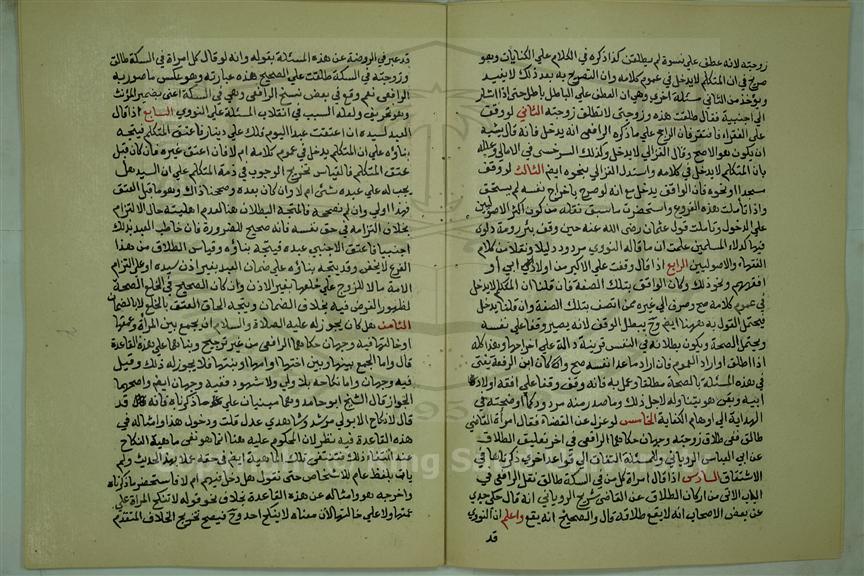 زوجته لانه عطف على نسوة لم يطلقن كذا ذكره في الكلام على الكنايات وهو
صريح في ان المتكلم لا يدخل في عموم كلامه وان التصريح به بعد ذلك لا يفيد
ويؤخذ من الثاني مسئلة اخرى وهي ان العطف على الباطل باطل حتى اذا اشار
الى اجنبية فقال طلقت هذه وزوجتي لا تطلق زوجته الثاني لو وقف
على الفقراء فافتقر فان الراجح على ما ذكره الرافعي انه يدخل فانه قال يشبه
ان يكون هو الاصح وقال الغزالي لا يدخل وكذلك السرخسي في الامالي
بان المتكلم لا يدخل في كلامه واستدل الغزالي بنحوه ايضا الثالث لو وقف
مسجدا او نحوه فان الواقف يدخل مع انه لو صرح باخراج نفسه لم يستحق
واذا تاملت هذه الفروع واستحضرت ما سبق نقله من كون اكثر الاصوليين
على الدخول وتاملت قول عثمان رضى الله عنه حين وقف بئر رومة دلوي
فيها كدلاء المسلمين علمت ان ما قاله النووي مردود دليلا ونقلا من كلام
الفقهاء والاصوليين الرابع اذا قال وقفت على الاكبر من اولاد ابي او
افقرهم ونحو ذلك وكان الواقف بتلك الصفة فان قلنا ان المتكلم لا يدخل
في عموم كلامه صح وصرف الى غيره ممن اتصف بتلك الصفة وان قلنا يدخل
فيحتمل القول به ههنا ايضا وح يبطل الوقف لانه يصير وقفا على نفسه
ويحتمل الصحة ويكون بطلانه في النفس قرينة دالة على اخراجها وهذا كله
اذا اطلق او اراد العموم فان اراد ما عدا نفسه صح وان كان ابن الرفعة يفتى
في هذه المسئلة بالصحة مطلقا وعمل به فانه وقف وقفا على افقه اولاد
ابيه وبقى هو يتناوله لاجل ذلك وما صدر منه مردود كما اوضحته في
الهداية الى اوهام الكفاية الخامس لو عزل عن القضاء فقال امرأة القاضي
طالق ففي طلاق زوجته وجهان حكاهما الرافعي في اخر تعليق الطلاق
عن ابي العباس الروياني وللمسئلة التفات الى قواعد اخرى ذكرناها في
الاشتقاق السادس اذا قال امرأة كل من في السكة طالق نقل الرافعي في
الباب الاتى من اركان الطلاق عن القاضى شريح الروياني انه قال حكى جدي
عن بعض الاصحاب انه لا يقع طلاقه قال والصحيح انه يقع واعلم ان النووي
قد
قد عبر في الروضة عن هذه المسئلة بقوله وانه لو قال كل امراة في السكة طالق
وزوجته في السكة طلقت على الصحيح هذه عبارته وهو عكس ما صور به
الرافعى نعم وقع في بعض نسخ الرافعى وهى في السكة اعنى بضمير المؤنث
وهو تحريف ولعله السبب في انقلاب المسئلة على النووي السابع اذا قال
العبد لسيده ان اعتقت عبدا اليوم فلك علي دينار فاعتق المتكلم فيتجه
بناؤه على ان المتكلم يدخل في عموم كلامه ام لا فان اعتق غيره فان كان قبل
عتق المتكلم فالقياس تخريج الوجوب في ذمة المتكلم على ان السيد هل
يجب له على عبده شئ ام لا وان كان بعده وصححنا ذلك وهو ما قبل العتق
فهذا اولى وان لم نصححه فالمتجه البطلان هنا لعدم اهليته حال الالتزام
بخلاف التزامه في حق نفسه فانه صحيح للضرورة فان خاطب العبد بذلك
اجنبيا فاعتق الاجنبي عبده فيتجه بناؤه وقياس الطلاق من هذا
الفرع لا يخفى وقد يتجه بناؤه على ضمان العبد بغير اذن سيده او على التزام
الامة مالا للزوج على خلعها بغير الاذن وان كان الصحيح في الخلع الصحة
لظهور الغرض فيه بخلاف الضمان ويتجه الحاق العتق بالخلع لا بالضمان
الثامن هل كان يجوز له عليه الصلاة والسلام ان يجمع بين المرأة وعمتها
او خالتها فيه وجهان حكاهما الرافعى من غير ترجيح وبناهما على هذه القاعدة
قال واما الجمع بينها وبين اختها وامها وابنتها فلا يجوز له ذلك وقيل
فيه وجهان واما نكاحه بلا ولى ولا شهود ففيه وجهان ايضا واصحهما
الجواز قال الشيخ ابو حامد وهما مبنيان على ما ذكرناه فانه قد
قال لا نكاح الا بولي مرشد وشاهدي عدل قلت ودخول هذا وامثاله في
هذه القاعدة فيه نظر لان المحكوم عليه هنا انما هو نفى ماهية النكاح
عند انتفاء ذلك فتنتفى تلك الماهية ايضا في حقه عملا بهذا الحديث ولم
يات بلفظ عام للاشخاص حتى نقول هل دخل فيهم ام لا فاستحضر ما ذكرناه
واخرج به هو وامثاله عن هذه القاعدة بخلاف نحو قوله لا تنكح المراة على
عمتها ولا على خالتها لان معناه لا ينكح احد وح فيصح تخريج الخلاف المتقدم